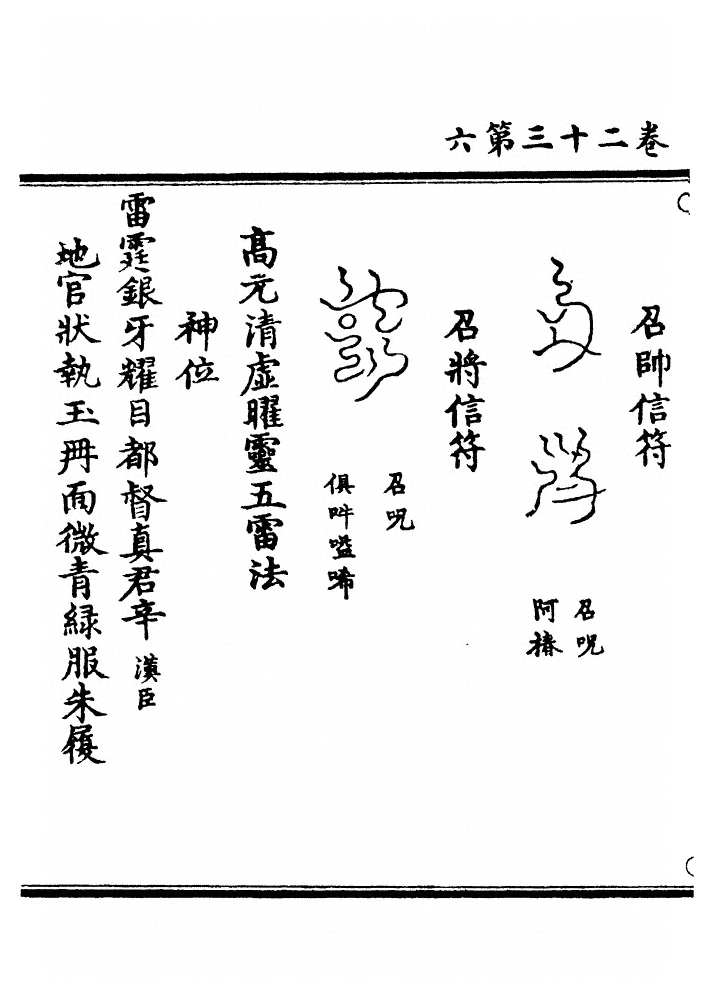 卷二十三第六
召帥信符
召呪
阿椿
召將信符
召呪
俱吽嗌唏
高元清虛曜靈五雷法
神位
雷霆銀牙耀目都督真君辛漢臣
地官狀執玉冊面微青綠服朱履